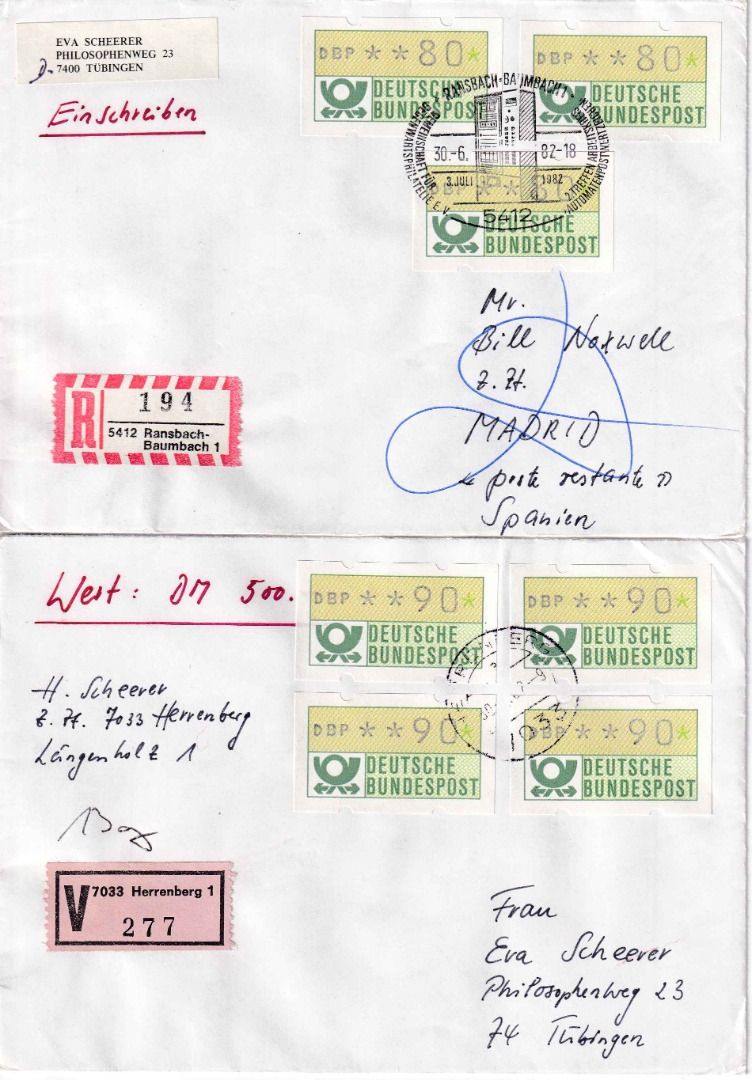 EVA SCHEERER
PHILOSOPHENWEG 23
D- 7400 TÜBINGEN
Einschreiben
DBP **80*
DEUTSCHE
BUNDESPOST
DBP **80*
DEUTSCHE
BUNDESPOST
RANSBACH-BAUMBACH 1
VEREINSCHAFT FÜR
GEGENWARTSPHILATELIE E.V.
30.-6.
82-18
3. JULI
1982
2. TREFFEN
AUTOMATENPOSTWERTZEICHEN
5412
DBP **80
DEUTSCHE
BUNDESPOST
Mr.
Bill Noxwell
z. Zt.
MADRID
« poste restante »
Spanien
R
194
5412 Ransbach-
Baumbach 1
Wert: DM 500.
DBP **90*
DEUTSCHE
BUNDESPOST
DBP **90*
DEUTSCHE
BUNDESPOST
DBP **90*
DEUTSCHE
BUNDESPOST
DBP **90*
DEUTSCHE
BUNDESPOST
7033
H. Scheerer
z. Zt. 7033 Herrenberg
Längenholz 1
V
7033 Herrenberg 1
277
Frau
Eva Scheerer
Philosophenweg 23
74 Tübingen